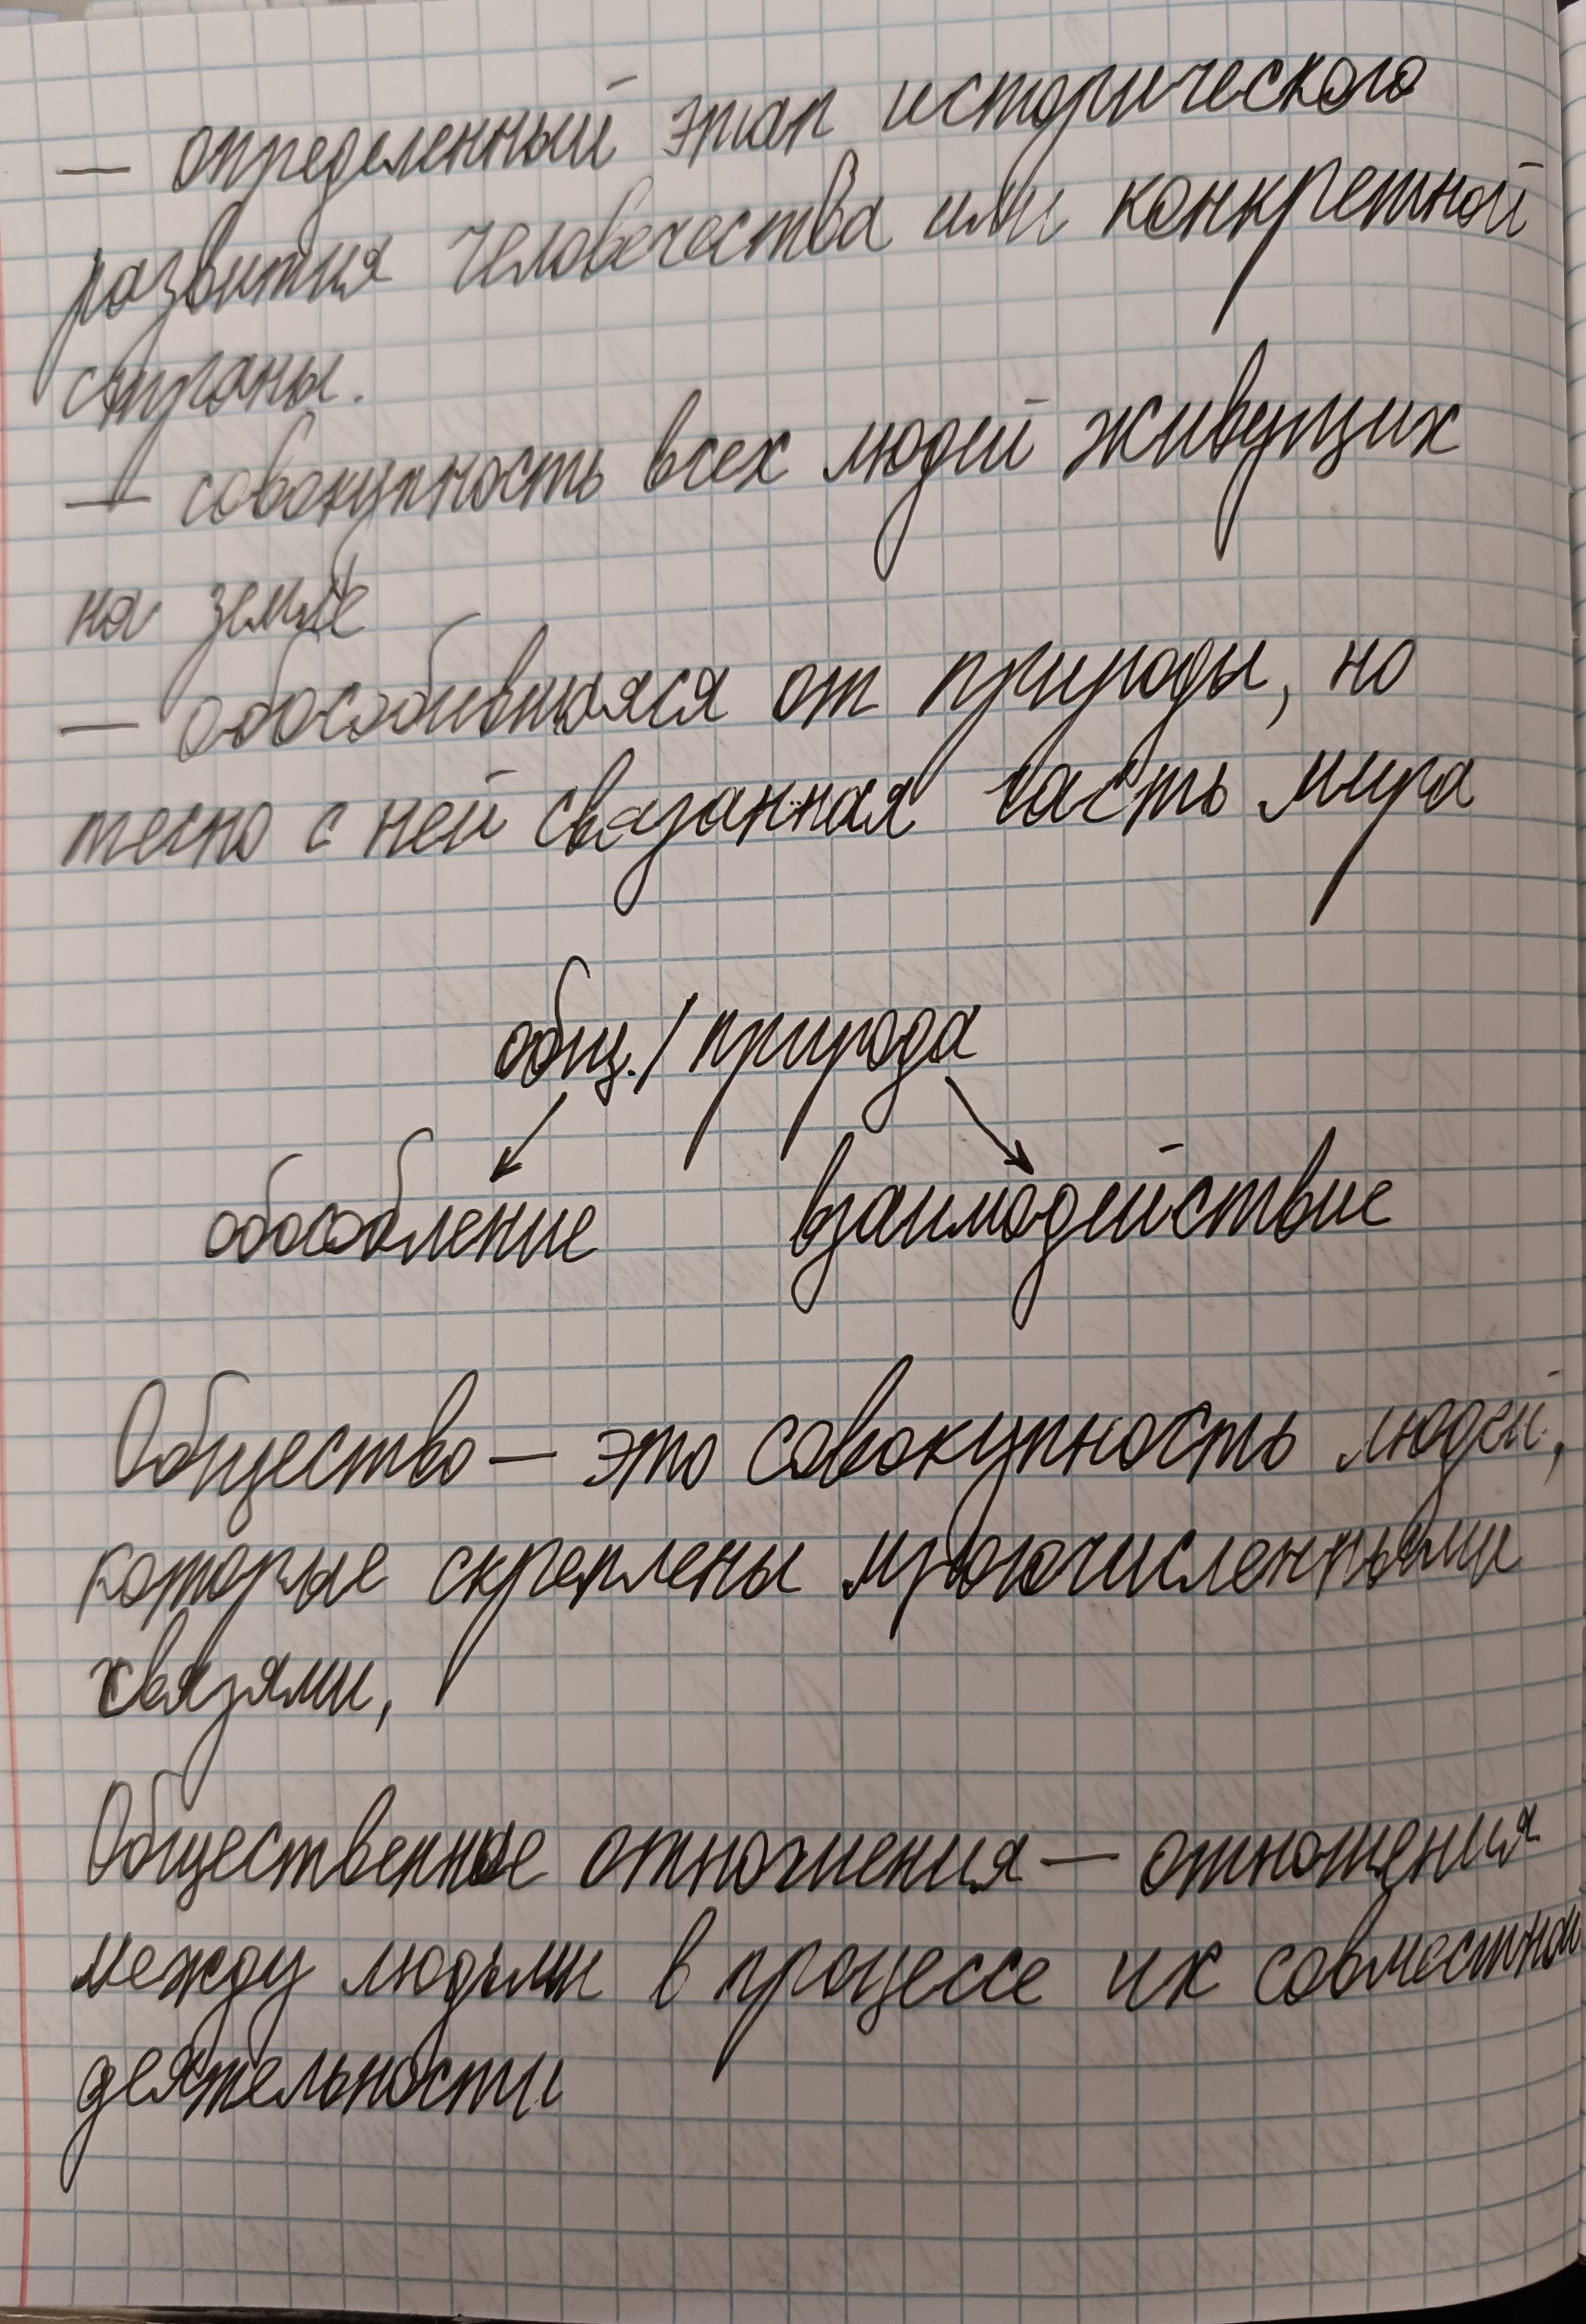 — определенный этап исторического
развития человечества или конкретной
страны.
— совокупность всех людей живущих
на земле
— обособившаяся от природы, но
тесно с ней связанная часть мира
общ. / природа
обособление взаимодействие
Общество — это совокупность людей,
которые скреплены многочисленными
связями,
Общественные отношения — отношения
между людьми в процессе их совместной
деятельности